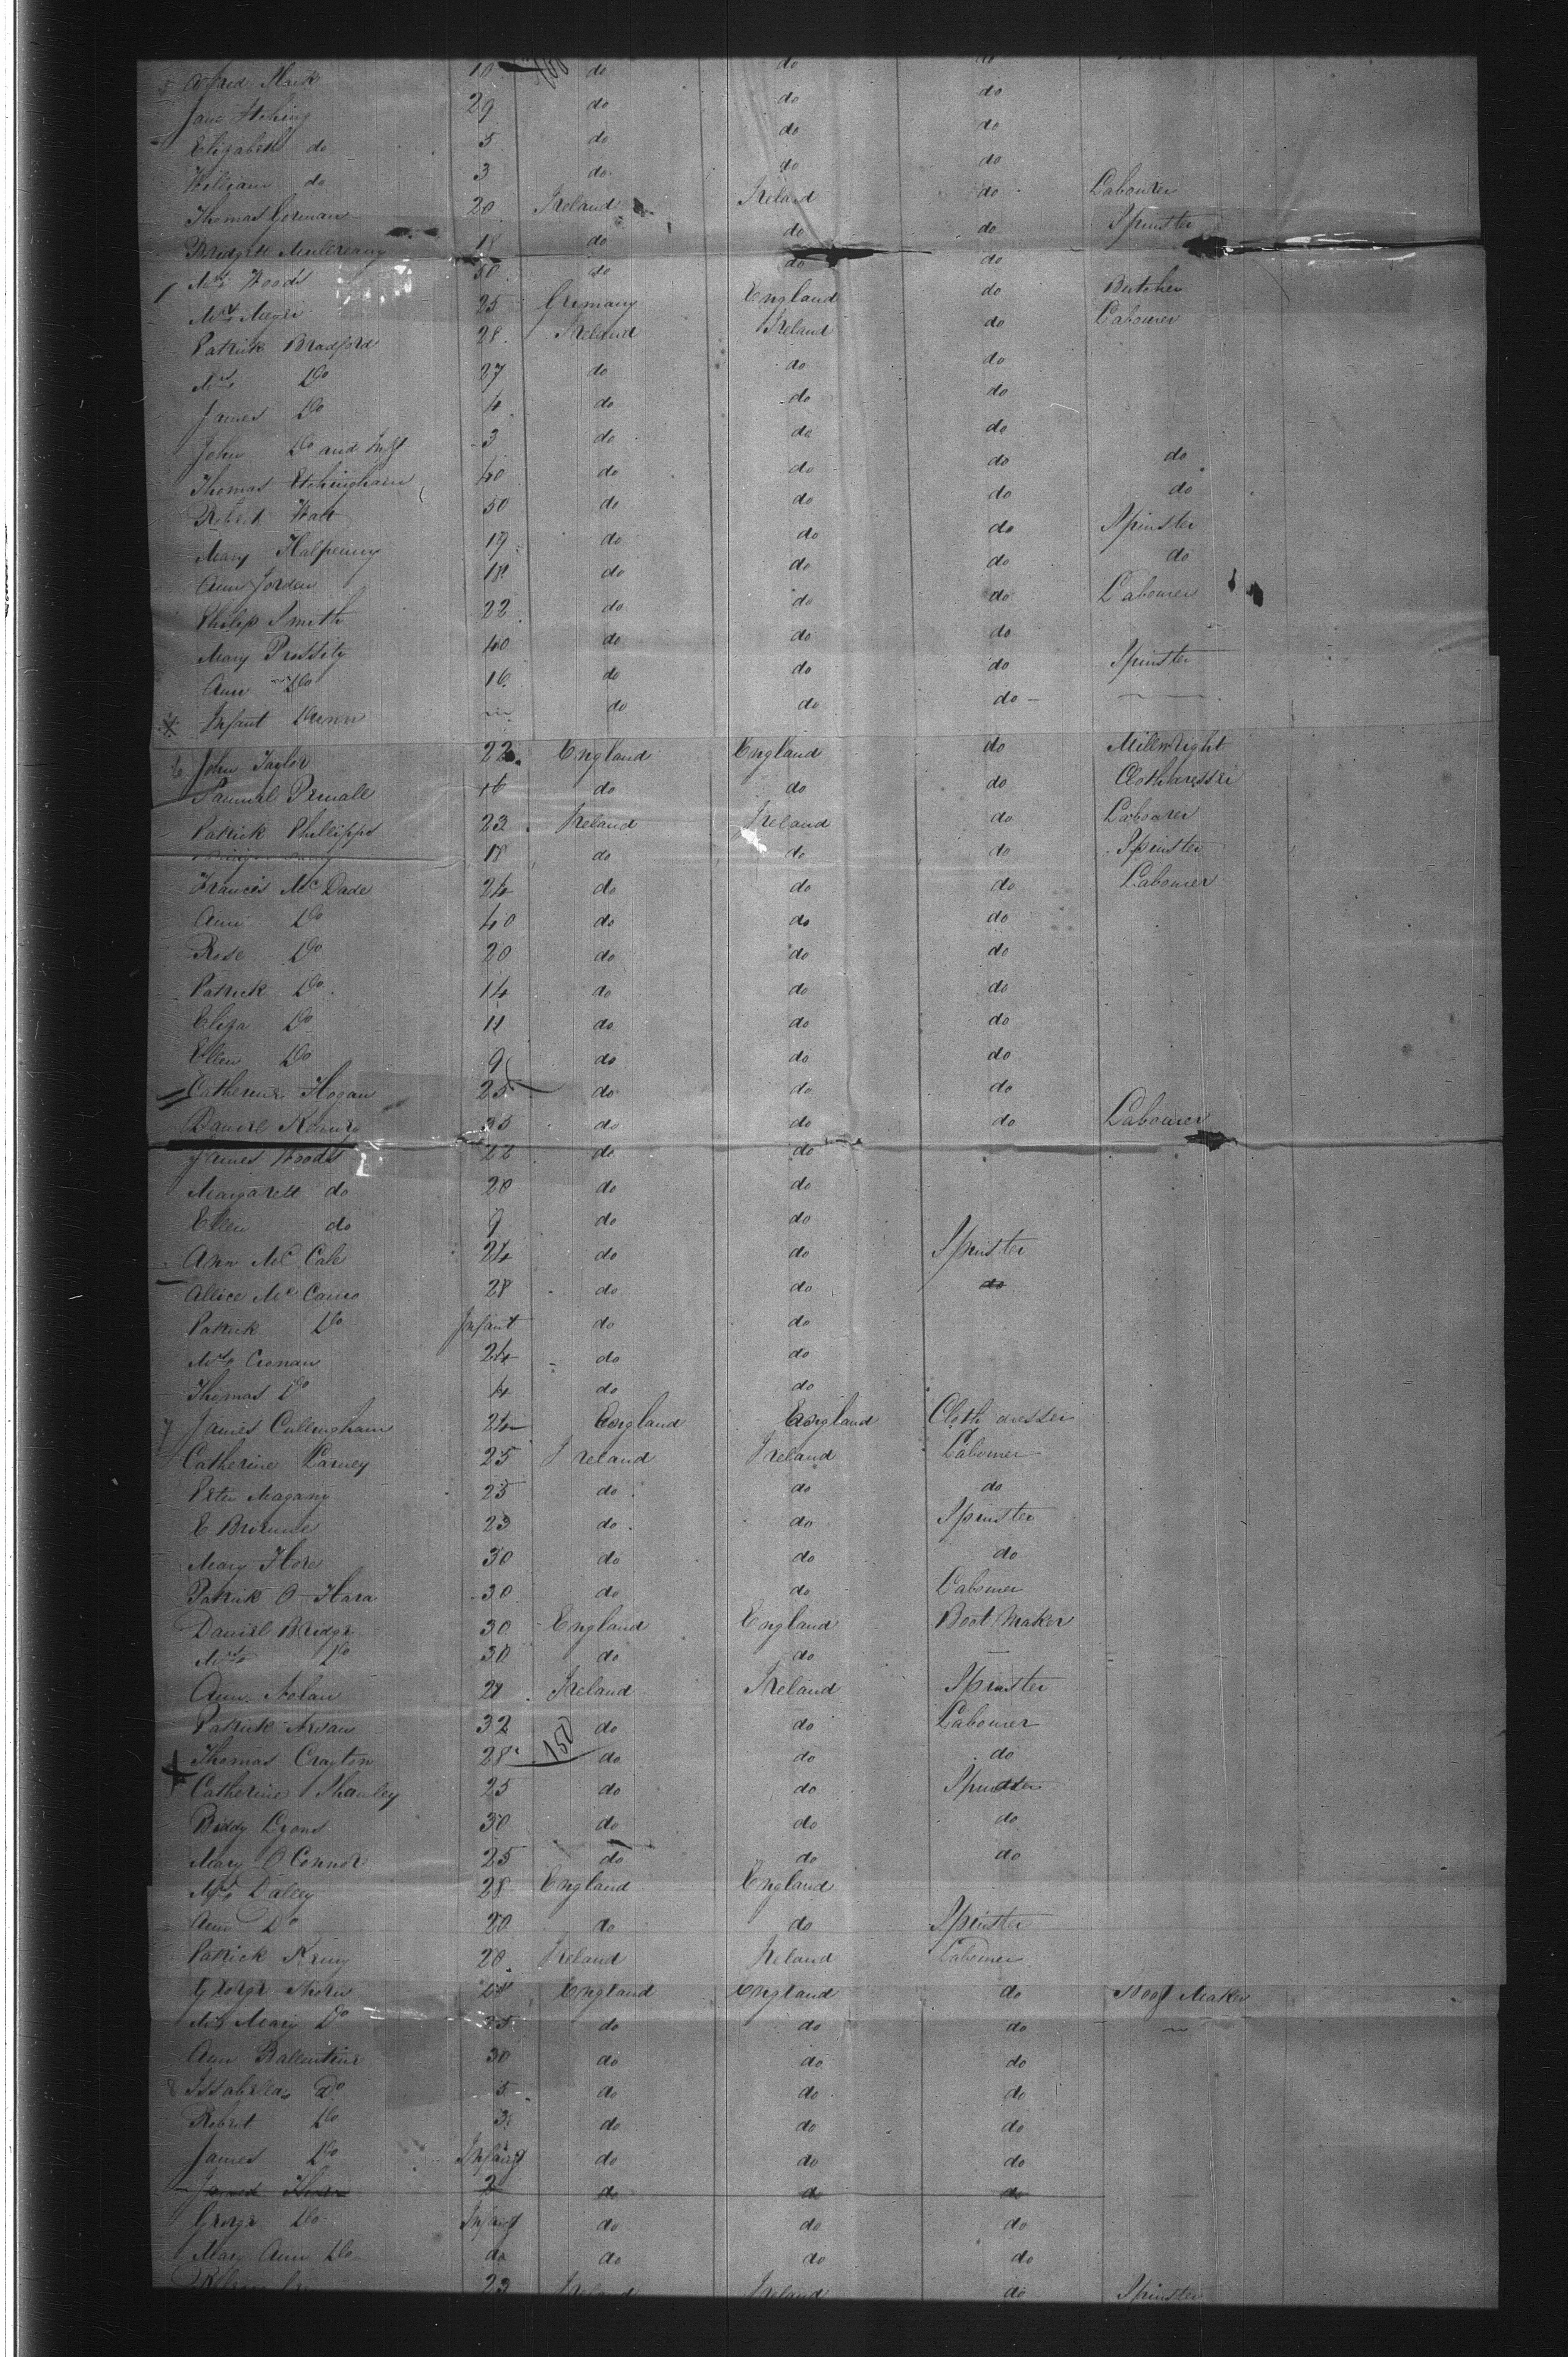 5 Alfred Mark 10 do do do
Jane Itching 29 do do do
Elizabeth do 5 do do do
William do 3 do do do
Thomas Gorman 20 Ireland Ireland do Labourer
Bridgett 18 do do do Spinster
Mrs Woods 50 do do do
Mr Meyer 25 Germany England do Butcher
Patrick Bradford 28 Ireland Ireland do Labourer
Mrs Do 27 do do do
James Do 4 do do do
John Do and Inft 3 do do do
Thomas Etchingham 40 do do do do
Robert Watt 50 do do do do
Mary Halpenny 19 do do do Spinster
Ann Jordan 18 do do do do
Philip Smith 22 do do do Labourer
Mary 40 do do do
Ann Do 16 do do do Spinster
Infant Dunn do do do
6 John Taylor 22 England England do Millwright
Samuel 16 do do do Clothdresser
Patrick Phillipps 23 Ireland Ireland do Labourer
18 do do do Spinster
Frances Mc Dade 24 do do do Labourer
Ann Do 40 do do do
Rose Do 20 do do do
Patrick Do 14 do do do
Eliza Do 11 do do do
Ellen Do 9 do do do
Catherine Hogan 25 do do do
Daniel 35 do do do Labourer
James Woods 22 do do
Margarett do 20 do do
Ellen do 9 do do
Ann Mc Cale 24 do do Spinster
Allice Mc 28 do do do
Patrick Do Infant do do
Mrs Cronan 24 do do
Thomas Do 4 do do
7 James Cullingham 24 England England Cloth dresser
Catherine Carney 25 Ireland Ireland Labourer
Peter Magany 25 do do do
E 23 do do Spinster
Mary Hore 30 do do do
Patrick O Hara 30 do do Labourer
Daniel Bridge 30 England England Boot Maker
Mrs Do 30 do do
Ann Nolan 21 Ireland Ireland Spinster
Patrick 32 do do Labourer
Thomas Crayton 28 150 do do do
Catherine Shanley 25 do do Spinster
Biddy Lyons 30 do do do
Mary O Connor 25 do do do
Mrs Daley 28 England England
Ann Do 20 do do Spinster
Patrick 20 Ireland Ireland Labourer
George England England do Maker
Mrs Mary Do 25 do do do
Ann Ballentine 30 do do do
8 Issabella Do 5 do do do
Robert Do 3 do do do
James Do Infant do do do
James 2 do do do
George Do Infant do do do
Mary Ann Do do do do do
23 Ireland Ireland do Spinster